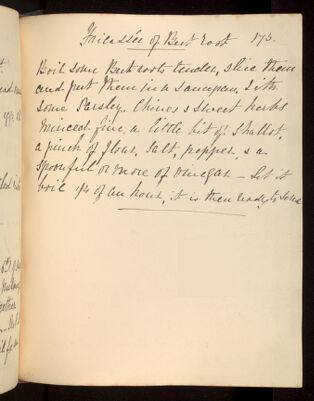 Fricassée of Beet root 175.
Boil some Beetroots tender, slice them
and put them in a saucepan with
some Parsley. Chives & sweet herbs
minced fine, a little bit of Shallot,
a pinch of flour, salt, pepper, & a
spoonful or more of vinegar – Let it
boil 1/4 of an hour, it is then ready to serve